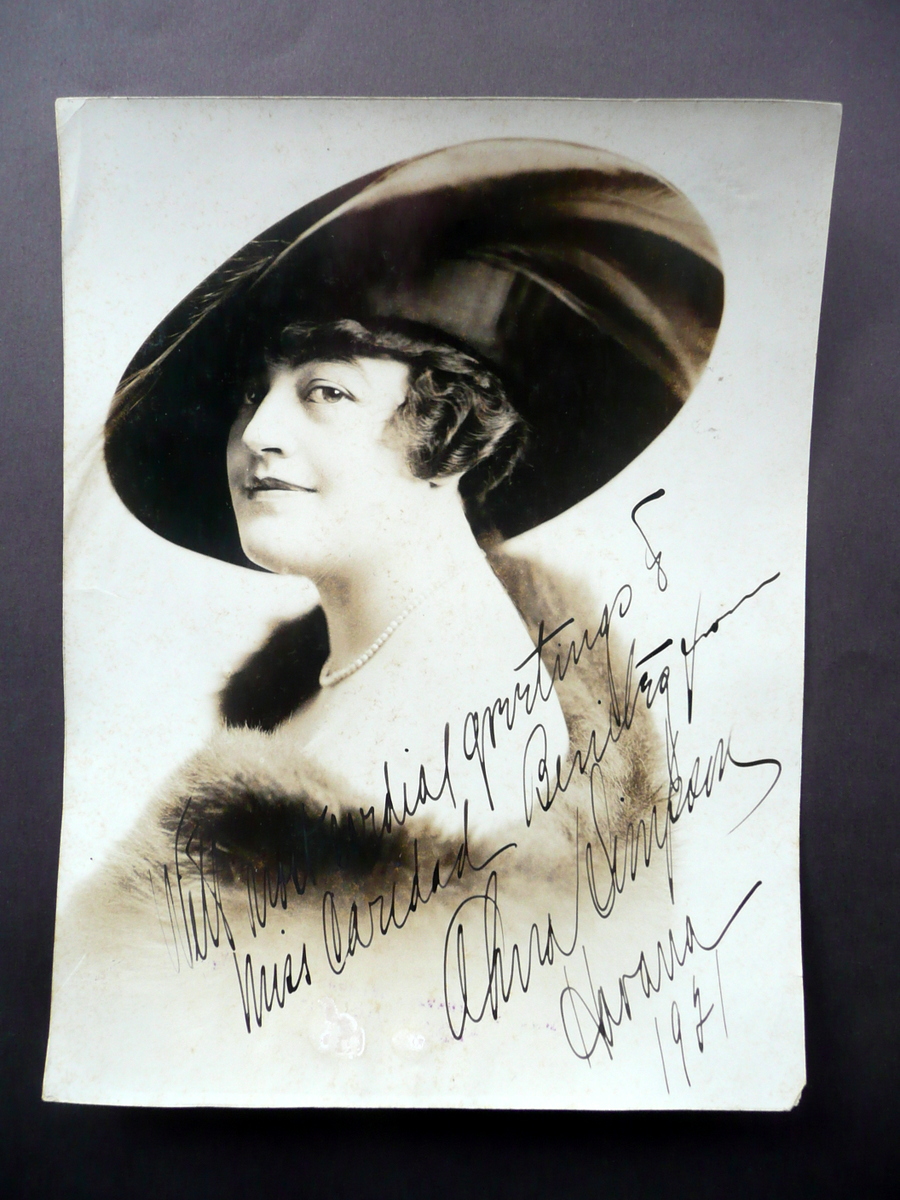 With most cordial greetings to
Miss Caridad Benitez from
Anna Simpson
Havana
1921